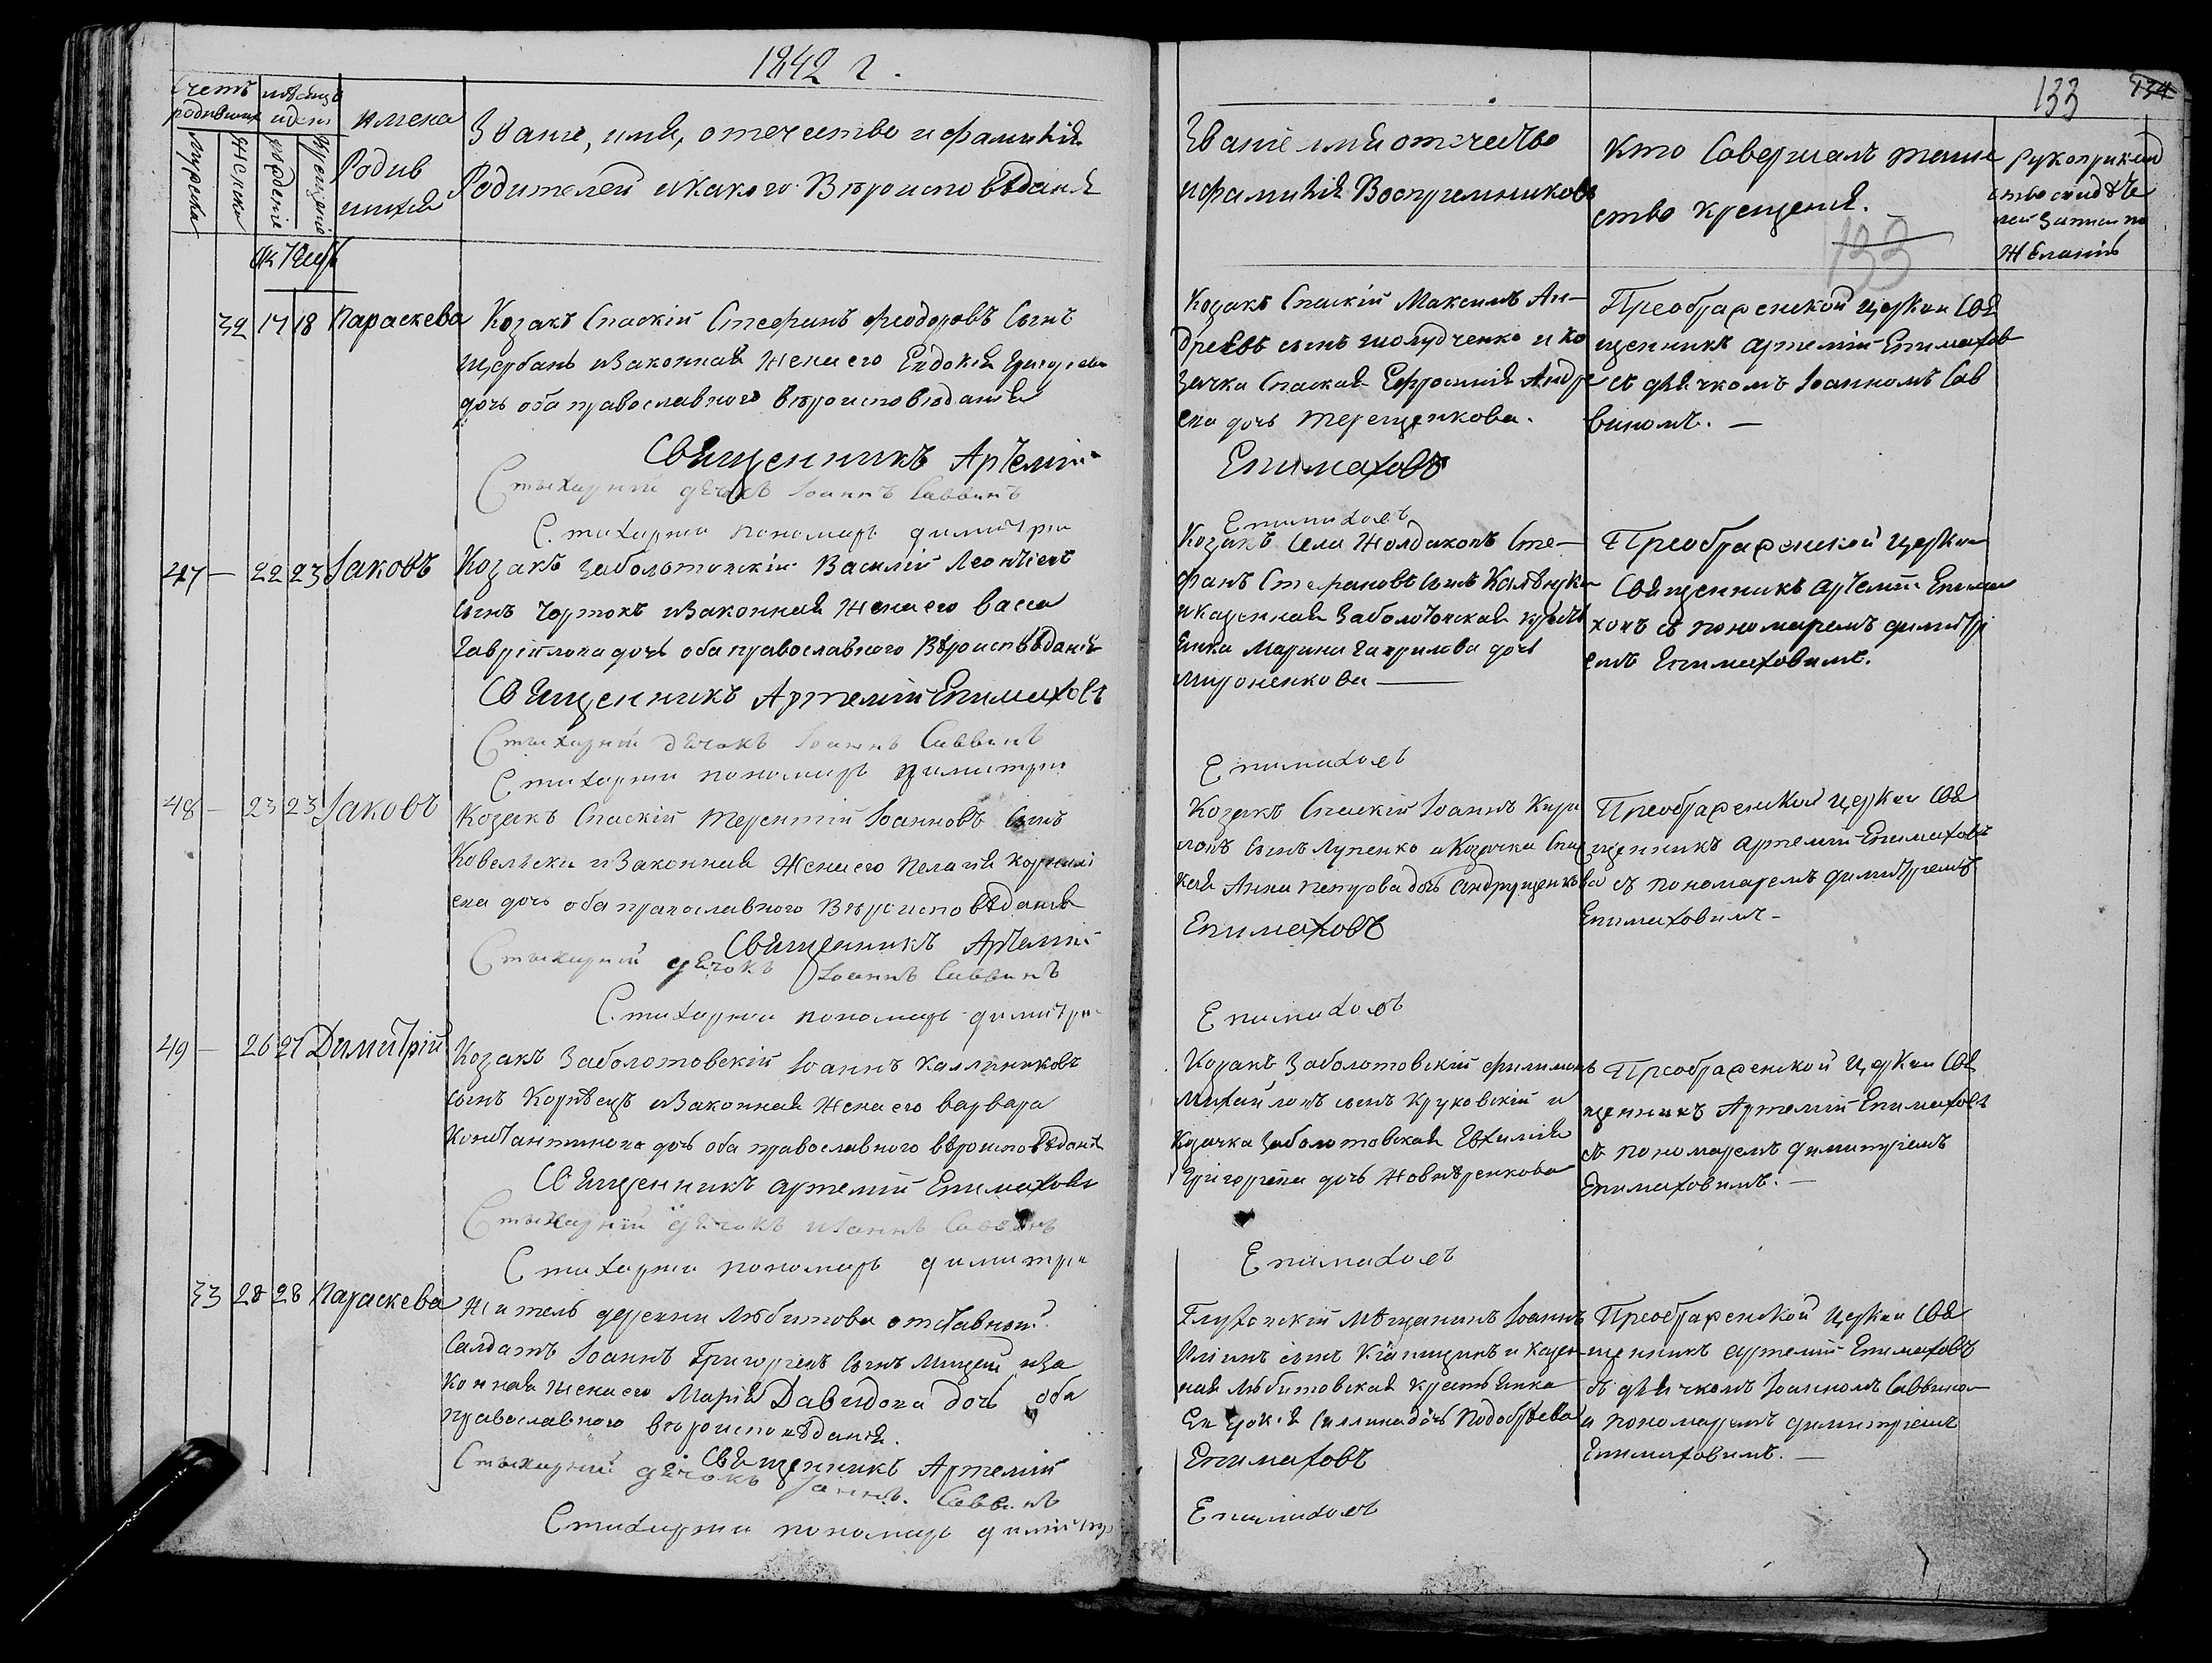 1842 г.
133
134
Счетъ родившихся
мѣсяцъ и день
имена Родив шихся
Званіе, имя, отечество и фамилія
Родителей и какого Вѣроисповѣданія
Званіе имя отечество
и фамилія Воспріемниковъ
Кто Совершалъ таин
ство крещенія.
рукоприклад
ство свидѣте
лей записи по
желанію
Мужеска
Женска
рожденіе
крещеніе
133
Октябрь
32 17 18 Параскева
Козакъ Спаскій Стефанъ Феодоровъ Сынъ
Щербань и Законная Жена его Евдокія Григориева
дочь оба православнаго вѣроисповѣданія
Священникъ Артемій
Стихарній дьячокъ Іоаннъ Саввинъ
Стихарни пономарь димитри
Козакъ Спаскій Максимъ Ан-
дреевъ сынъ Шолудченко и Ко
зачка Спаская Ефросинія Андре
ева дочь Терещенкова.
Епимаховъ
Епимаховъ
Преображенской церкви Свя
щенникъ Артемій Епимахов
съ дьячкомъ Іоанномъ Сав
винымъ. —
47 — 22 23 Іаковъ
Козакъ Заболотовскій Василій Леонтіевъ
сынъ Чортокъ и Законная Жена его Васса
Гавріилова дочь оба православного Вѣроисповѣданія
Священникъ Артемій Епимаховъ
Стихарній дьячокъ Іоаннъ Саввинъ
Стихарни пономарь димитри
Козакъ Села Жолдаковъ Сте-
фанъ Стефановъ Сынъ
и казенная Заболотовская крестья
янка Марина Гаврилова дочь
Мироненкова —
Епимаховъ
Преображенской Церкви
Священникъ Артемій Епима
ховъ съ пономаремъ димитрі
емъ Епимаховимъ.
48 — 23 23 Іаковъ
Козакъ Спаскій Терентій Іоанновъ Сынъ
и Законная Жена его Пелагія Корнилі
ева дочь оба православного Вѣроисповѣданія
Священникъ Артемій
Стихарній дьячокъ Іоаннъ Саввинъ
Стихарни пономарь димитри
Козакъ Спаскій Іоаннъ Кири
ловъ Сынъ Лупенко и Козачка Спас
кая Анна Петрова дочь Андрущенкова
Епимаховъ
Епимаховъ
Преображенской Церкви Свя
щенникъ Артемій Епимаховъ
съ пономаремъ димитріемъ
Епимаховимъ —
49 — 26 27 Димитрій
Козакъ Заболотовскій Іоаннъ Каллиниковъ
сынъ Корнѣецъ и Законная Жена его Варвара
Константинова дочь оба православного вѣроисповѣданія
Священникъ Артемій Епимаховъ
Стихарній дьячокъ Иоаннъ Саввинъ
Стихарни пономарь димитри
Козакъ Заболотовскій Филимонъ
Михайловъ сынъ Круковскій и
Козачка Заболотовская Евфимія
Григориева дочь
Епимаховъ
Преображенской Церкви Свя
щенникъ Артемій Епимаховъ
съ пономаремъ димитріемъ
Епимаховимъ. —
33 28 28 Параскева
Житель деревни Любитова отставной
Салдатъ Іоаннъ Григориевъ Сынъ Мицей и За
конная жена его Марія Давидова дочь оба
православного вѣроисповѣданія.
Священникъ Артемій
Стихарній дьячокъ Іоаннъ Саввинъ
Стихарни пономарь димитри
Глуховскій мѣщанинъ Іоаннъ
Иліинъ сынъ и Казен
ная Любитовская крестьянка
Евдокія дочь Подобѣева
Епимаховъ
Епимаховъ
Преображенской Церкви Свя
щенникъ Артемій Епимаховъ
съ дьячкомъ Іоанномъ Саввином
и пономаремъ димитріемъ
Епимаховимъ. —